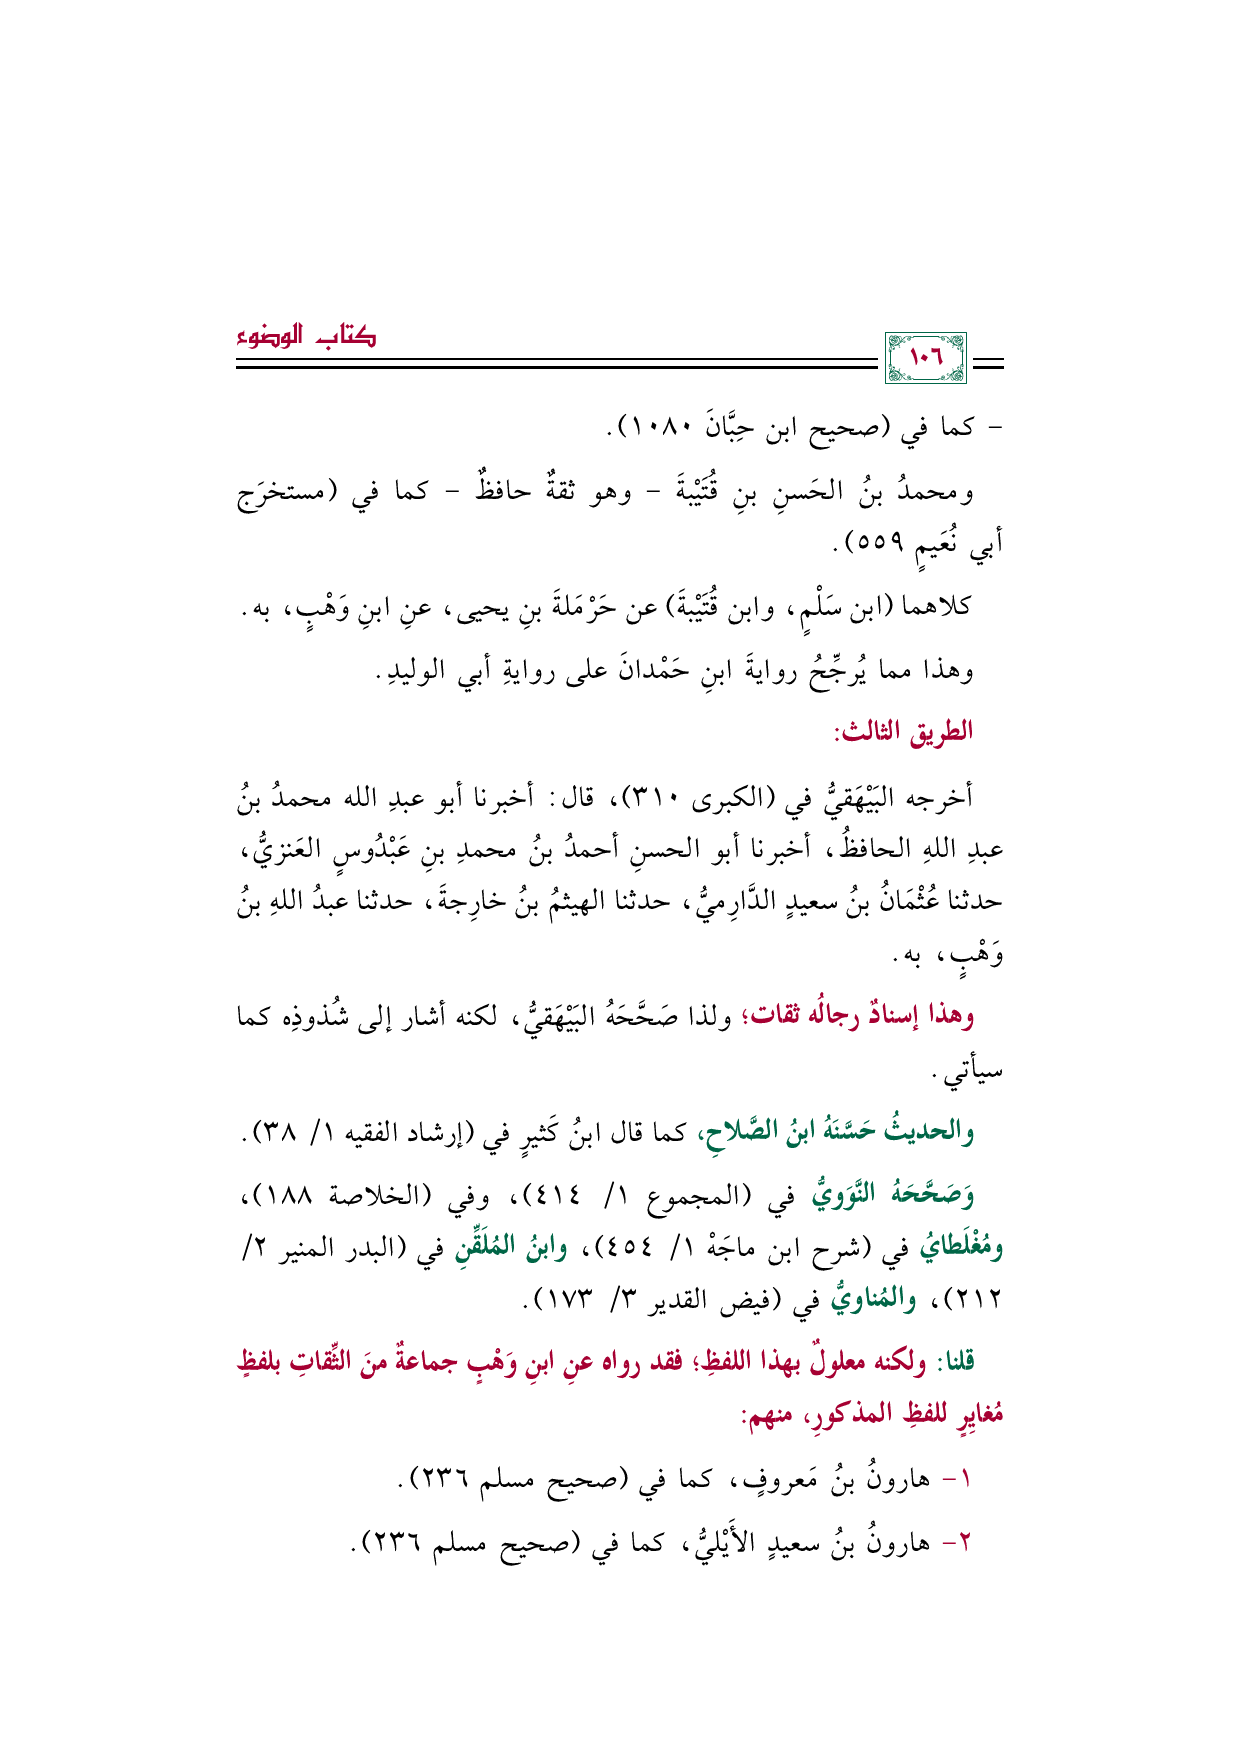 كتاب الوضوء
١٠٦
- كما في (صحيح ابن حِبَّانَ ١٠٨٠).
ومحمدُ بنُ الحَسنِ بنِ قُتَيْبةَ - وهو ثقةٌ حافظٌ - كما في (مستخرَج
أبي نُعَيمٍ ٥٥٩).
كلاهما (ابن سَلْمٍ، وابن قُتَيْبةَ) عن حَرْمَلةَ بنِ يحيى، عنِ ابنِ وَهْبٍ، به.
وهذا مما يُرجِّحُ روايةَ ابنِ حَمْدانَ على روايةِ أبي الوليدِ.
الطريق الثالث:
أخرجه البَيْهَقيُّ في (الكبرى ٣١٠)، قال: أخبرنا أبو عبدِ الله محمدُ بنُ
عبدِ اللهِ الحافظُ، أخبرنا أبو الحسنِ أحمدُ بنُ محمدِ بنِ عَبْدُوسٍ العَنزيُّ،
حدثنا عُثْمَانُ بنُ سعيدٍ الدَّارِميُّ، حدثنا الهيثمُ بنُ خارِجةَ، حدثنا عبدُ اللهِ بنُ
وَهْبٍ، به.
وهذا إسنادٌ رجالُه ثقات؛ ولذا صَحَّحَهُ البَيْهَقيُّ، لكنه أشار إلى شُذوذِه كما
سيأتي.
والحديثُ حَسَّنَهُ ابنُ الصَّلاحِ، كما قال ابنُ كَثيرٍ في (إرشاد الفقيه ١/ ٣٨).
وَصَحَّحَهُ النَّوَويُّ في (المجموع ١/ ٤١٤)، وفي (الخلاصة ١٨٨)،
ومُغْلَطايُ في (شرح ابن ماجَهْ ١/ ٤٥٤)، وابنُ المُلَقِّنِ في (البدر المنير ٢/
٢١٢)، والمُناويُّ في (فيض القدير ٣/ ١٧٣).
قلنا: ولكنه معلولٌ بهذا اللفظِ؛ فقد رواه عنِ ابنِ وَهْبٍ جماعةٌ منَ الثِّقاتِ بلفظٍ
مُغايِرٍ للفظِ المذكورِ، منهم:
١- هارونُ بنُ مَعروفٍ، كما في (صحيح مسلم ٢٣٦).
٢- هارونُ بنُ سعيدٍ الأَيْليُّ، كما في (صحيح مسلم ٢٣٦).